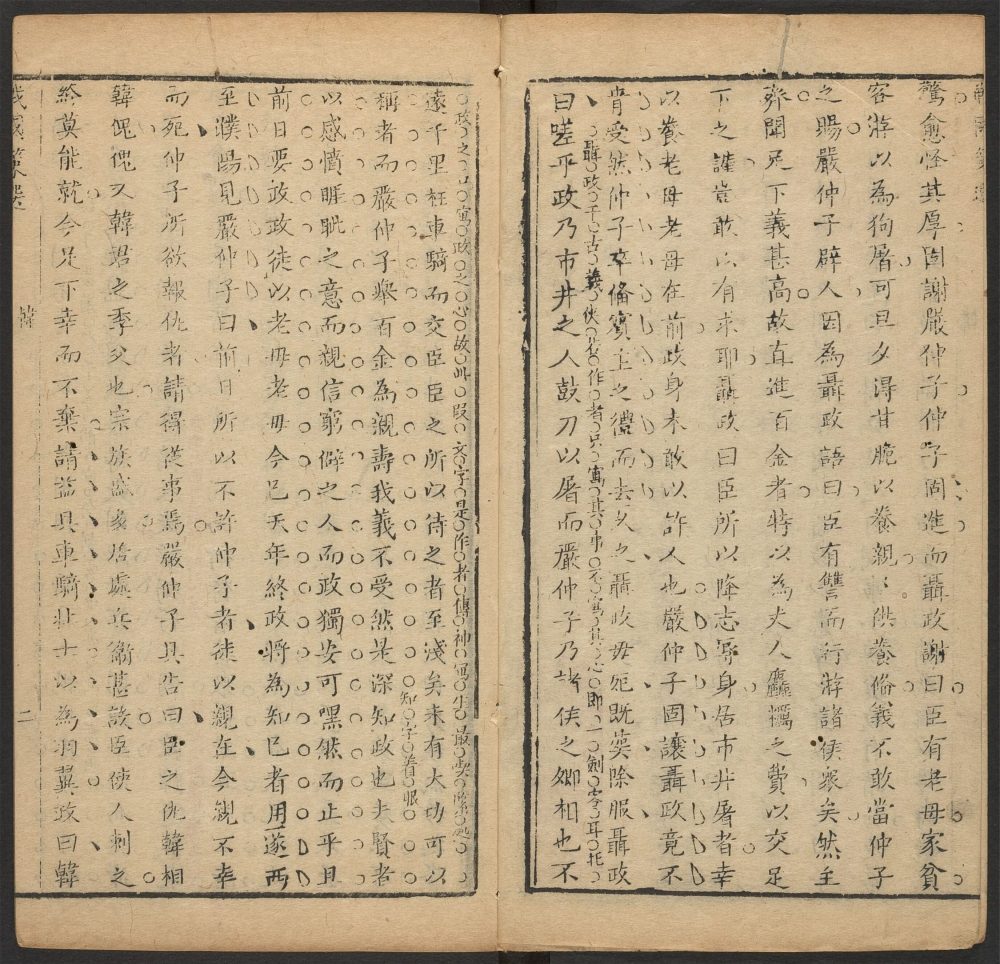 驚愈怪其厚固謝嚴仲子仲子固進而聶政謝曰臣有老母家貧
客游以為狗屠可旦夕得甘脆以養親〻供養備義不敢當仲子
之賜嚴仲子辟人因為聶政語曰臣有讐而行游諸侯衆矣然至
齊聞足下義甚高故直進百金者特以為丈人麤糲之費以交足
下之讙豈敢以有求耶聶政曰臣所以降志辱身居市井屠者幸
以養老母老母在前政身未敢以許人也嚴仲子固讓聶政竟不
肯受然仲子卒備賓主之禮而去久之聶政母死既葬除服聶政
聶政千古義俠若作者只寫其事不寫其心即一劍客耳托
曰嗟乎政乃市井之人鼓刀以屠而嚴仲子乃諸侯之卿相也不
政之口寫政之心故此叚文字是作者傳神寫生最喫緊處
遠千里枉車騎而交臣臣之所以待之者至淺矣未有大功可以
稱者而嚴仲子舉百金為親壽我義不受然是深知政也夫賢者
知字着眼
以感憤睚眦之意而親信窮僻之人而政獨安可嘿然而止乎且
前日要政政徒以老母老母今已天年終政將為知已者用遂西
至濮陽見嚴仲子曰前日所以不許仲子者徒以親在今親不幸
而死仲子所欲報仇者請得從事焉嚴仲子具告曰臣之仇韓相
韓傀傀又韓君之季父也宗族盛多居處兵衛甚設臣使人刺之
終莫能就今足下幸而不棄請益具車騎壯士以為羽翼政曰韓
韓
二